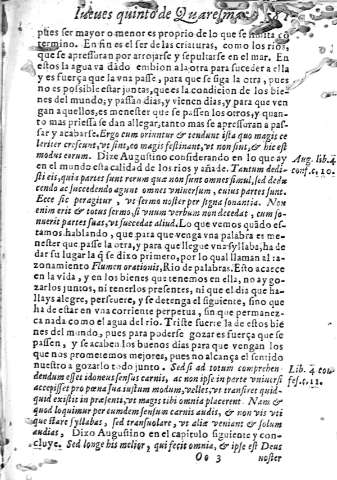 Iueues quinto de Quaresma.
pues ser mayor o menor es proprio de lo que se limita cõ
termino. En fin es el ser de las criaturas, como los rios,
que se apressuran por arrojarse y sepultarse en el mar. En
estos la agua va dãdo embion a la otra para suceder a ella
y es fuerça que la vna passe, para que se siga la otra, pues
no es possible estar juntas, que es la condicion de los bie-
nes del mundo; y passan dias, y vienen dias, y para que ven
gan aquellos, es menester que se passen los otros, y quan-
to mas priessa se dan a llegar, tanto mas se apressuran a pas-
sar y acabarse. Ergo cum oriuntur & tendunt ista quo magis ce
leriter crescunt, vt sint, eo magis festinant, vt non sint, & hic est
modus eorum. Dize Augustino considerando en lo que ay
en el mundo esta calidad de los rios y añade. Tantum dedi-
sti eis, quia partes sunt rerum qua non sunt omnes simul, sed dece-
dendo ac succedendo agunt omnes vniuersum, cuius partes sunt.
Ecce sic peragitur, vt sermo noster per signa sonantia. Non
enim erit & totus sermo, si vnum verbum non decedat, cum so-
nuerit partes suas, vt succedat aliud. Lo que vemos quãdo es-
tamos hablando, que para que venga vna palabra es me-
nester que passe la otra, y para que llegue vna syllaba, ha de
dar su lugar la q̃ se dixo primero, por lo qual llaman al ra-
zonamiento Flumen orationis, Rio de palabras. Esto acaece
en la vida, y en los bienes que tenemos en ella, no ay go-
zarlos juntos, ni tenerlos presentes, ni que el dia que ha-
llays alegre, perseuere, y se detenga el siguiente, sino que
ha de estar en vna corriente perpetua, sin que permanez-
ca nada como el agua del rio. Triste suerte la de estos bie
nes del mundo, pues para poderse gozar es fuerça que se
passen, y se acaben los buenos dias para que vengan los
que nos prometemos mejores, pues no alcança el sentido
nuestro a gozarlo todo junto. Sed si ad totum comprehen-
dendum esset idoneus sensus carnis, ac non ipse in parte vniuersi
accepisset pro pœna sua iustum modum, velles, vt transiret quid-
quid existit in præsenti, vt magis tibi omnia placerent. Nam &
quod loquimur per eumdem sensum carnis audis, & non vis vti
que stare syllabas, sed transuolare, vt aliæ veniant & totum
audias. Dixo Augustino en el capitulo siguiente y con-
cluye. Sed longe his melior, qui fecit omnia, & ipse est Deus
Oo 3 noster
Aug. lib. 4
conf. c. 10.
Lib. 4. con
fes. c. 11.